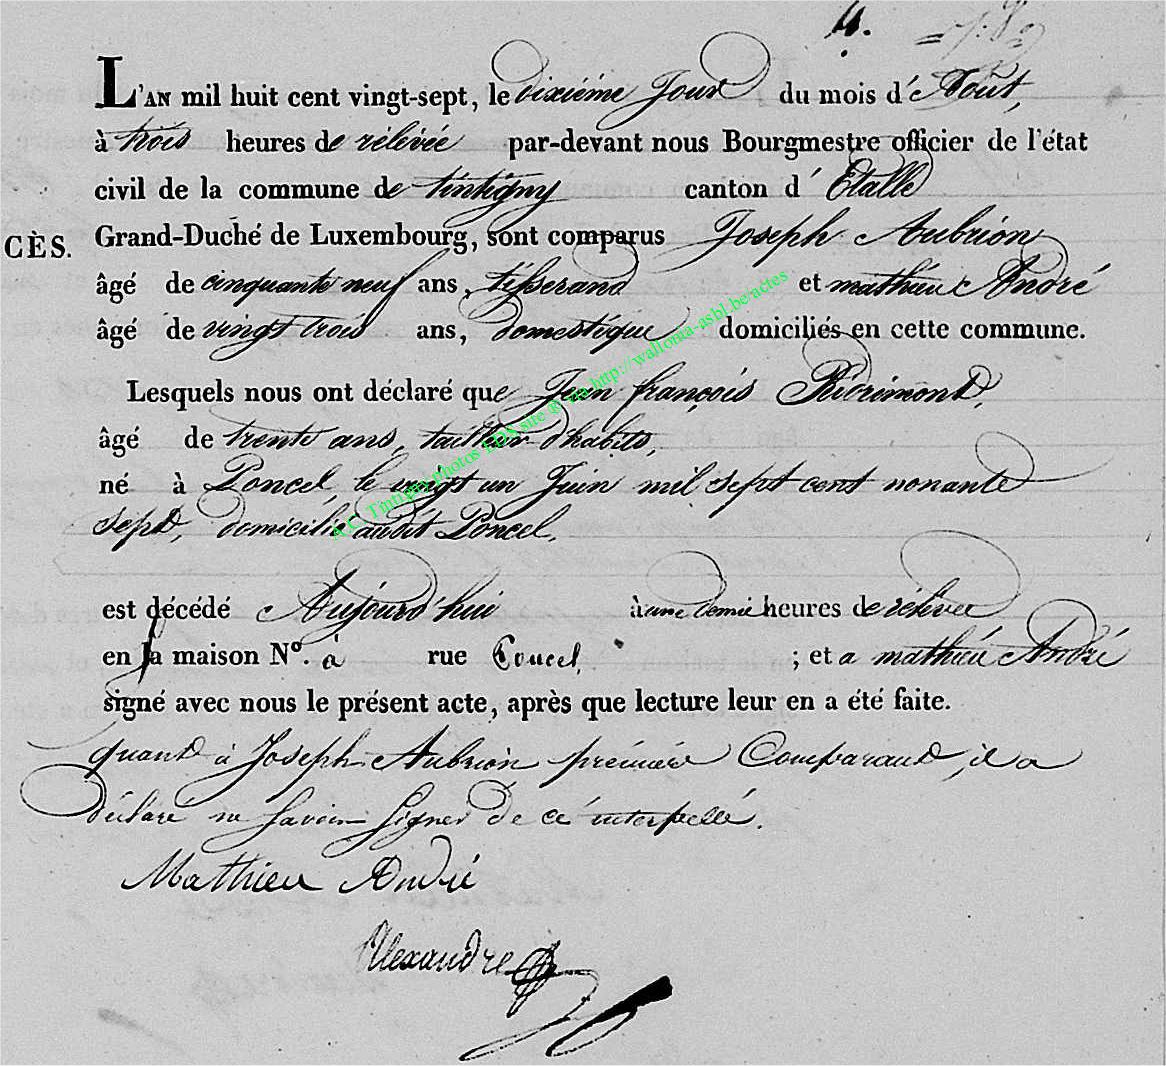 4.
L'AN mil huit cent vingt-sept, le dixiéme Jour du mois d'Aout,
à trois heures de rélévée par-devant nous Bourgmestre officier de l'état
civil de la commune de tintigny canton d'Etalle
CÈS. Grand-Duché de Luxembourg, sont comparus Joseph Aubrion
âgé de cinquante neuf ans, tisserand et mathieu André
âgé de vingt trois ans, domestique domiciliés en cette commune.
Lesquels nous ont déclaré que Jean françois
âgé de trente ans, tailleur d'habits,
né à Poncel le vingt un Juin mil sept cent nonante
sept, domicilié audit Poncel,
est décédé Aujourd'hui à une demie heures de rélévée
en sa maison N°. à rue Poncel, ; et a mathieu André
signé avec nous le présent acte, après que lecture leur en a été faite.
quant à Joseph Aubrion prémier Comparant, il a
déclaré ne savoir signer de cé interpellé.
Mathieu André
Alexandre
A.C. Tintigny photos EDS site @ via http://wallonia-asbl.be/actes